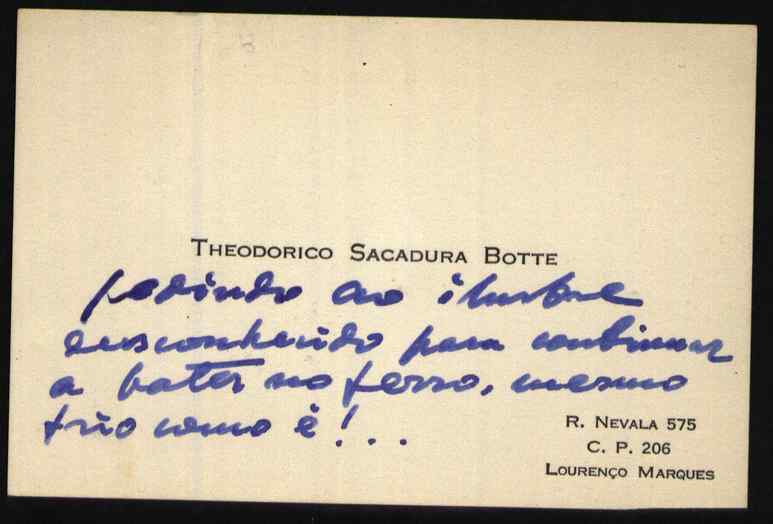 THEODORICO SACADURA BOTTE
pedindo ao ilustre
desconhecido para continuar
a bater no ferro, mesmo
frio como é!...
R. NEVALA 575
C. P. 206
LOURENÇO MARQUES